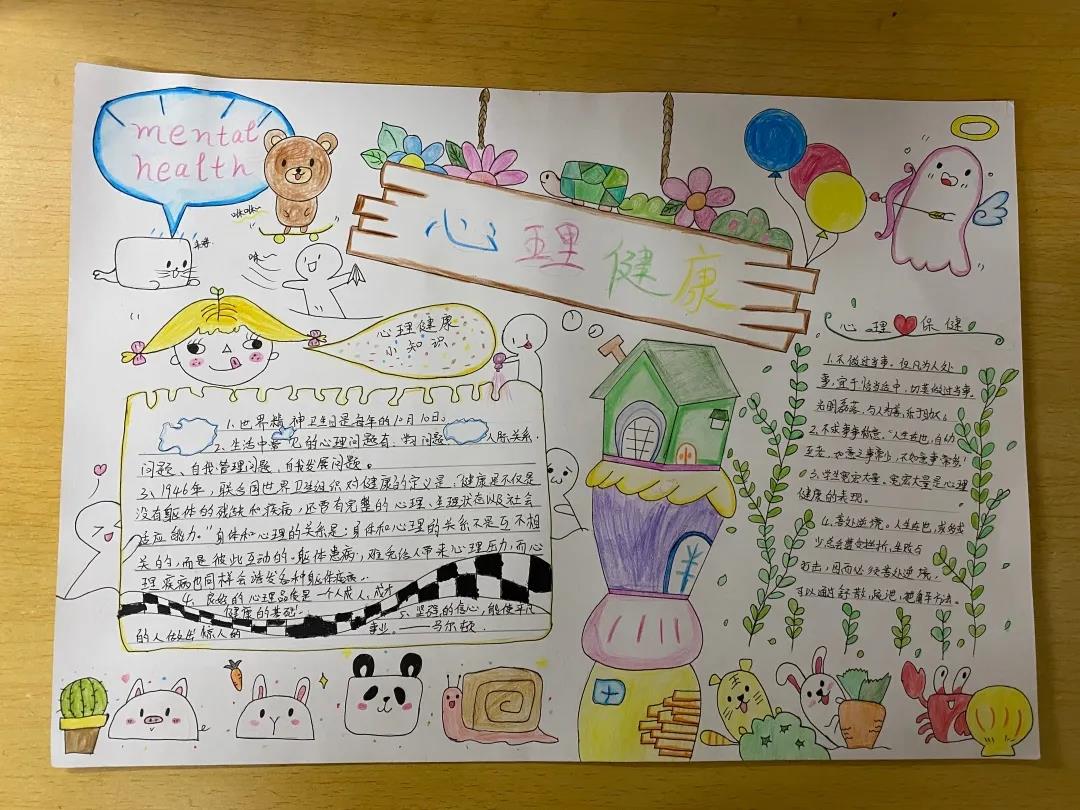 mental
health
心理健康
心理健康
小知识
1. 世界精神卫生日是每年的10月10日。
2. 生活中常见的心理问题有：学习问题、人际关系
问题、自我管理问题，自我发展问题。
3、1946年，联合国世界卫生组织对健康的定义是，"健康是不仅是
没有躯体的残缺和疾病，还要有完整的心理、生理状态以及社会
适应能力。"身体和心理的关系是：身体和心理的关系不是互不相
关的，而是彼此互动的。躯体患病，难免给人带来心理压力，而心
理疾病也同样会诱发各种躯体疾病。
4、良好的心理品质是一个人成人、成才
健康的基础。
5、坚强的信心，能使平凡
的人做出惊人的事业。——马尔顿
心理保健
1、不做过当事。但凡为人处
事，宜于恰当适中，切莫做过当事。
光明磊落，与人为善，乐于助人。
2、不求事事称意。"人生在世，
如意之事少，不如意事常多"
3、学生宽宏大量。宽宏大量是心理
健康的表现。
4、善处逆境。人生在世，或多或
少总会遭受挫折，坐吃与
打击，因而必须善处逆境，
可以通过